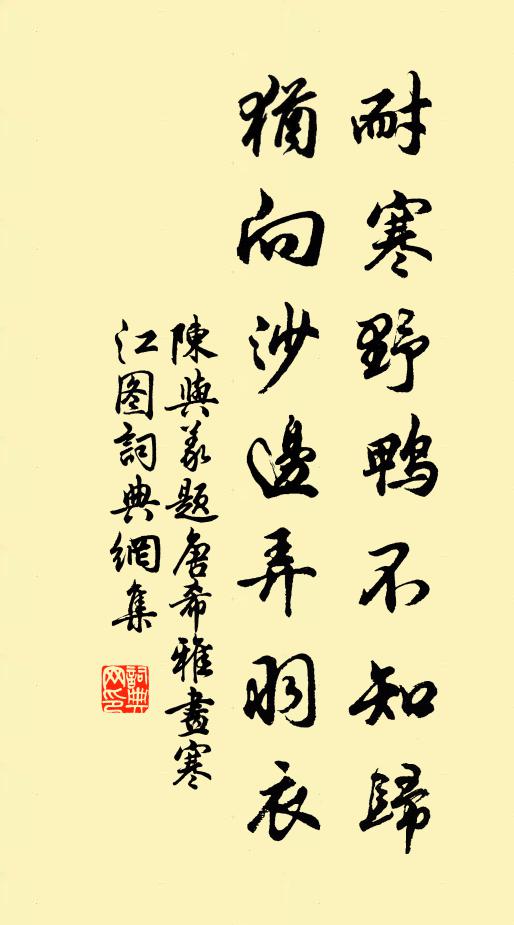 耐寒野鸭不知歸
猶向沙邊弄羽衣
陳與義題唐希雅畫寒
江图詞典網集
詞典
网印